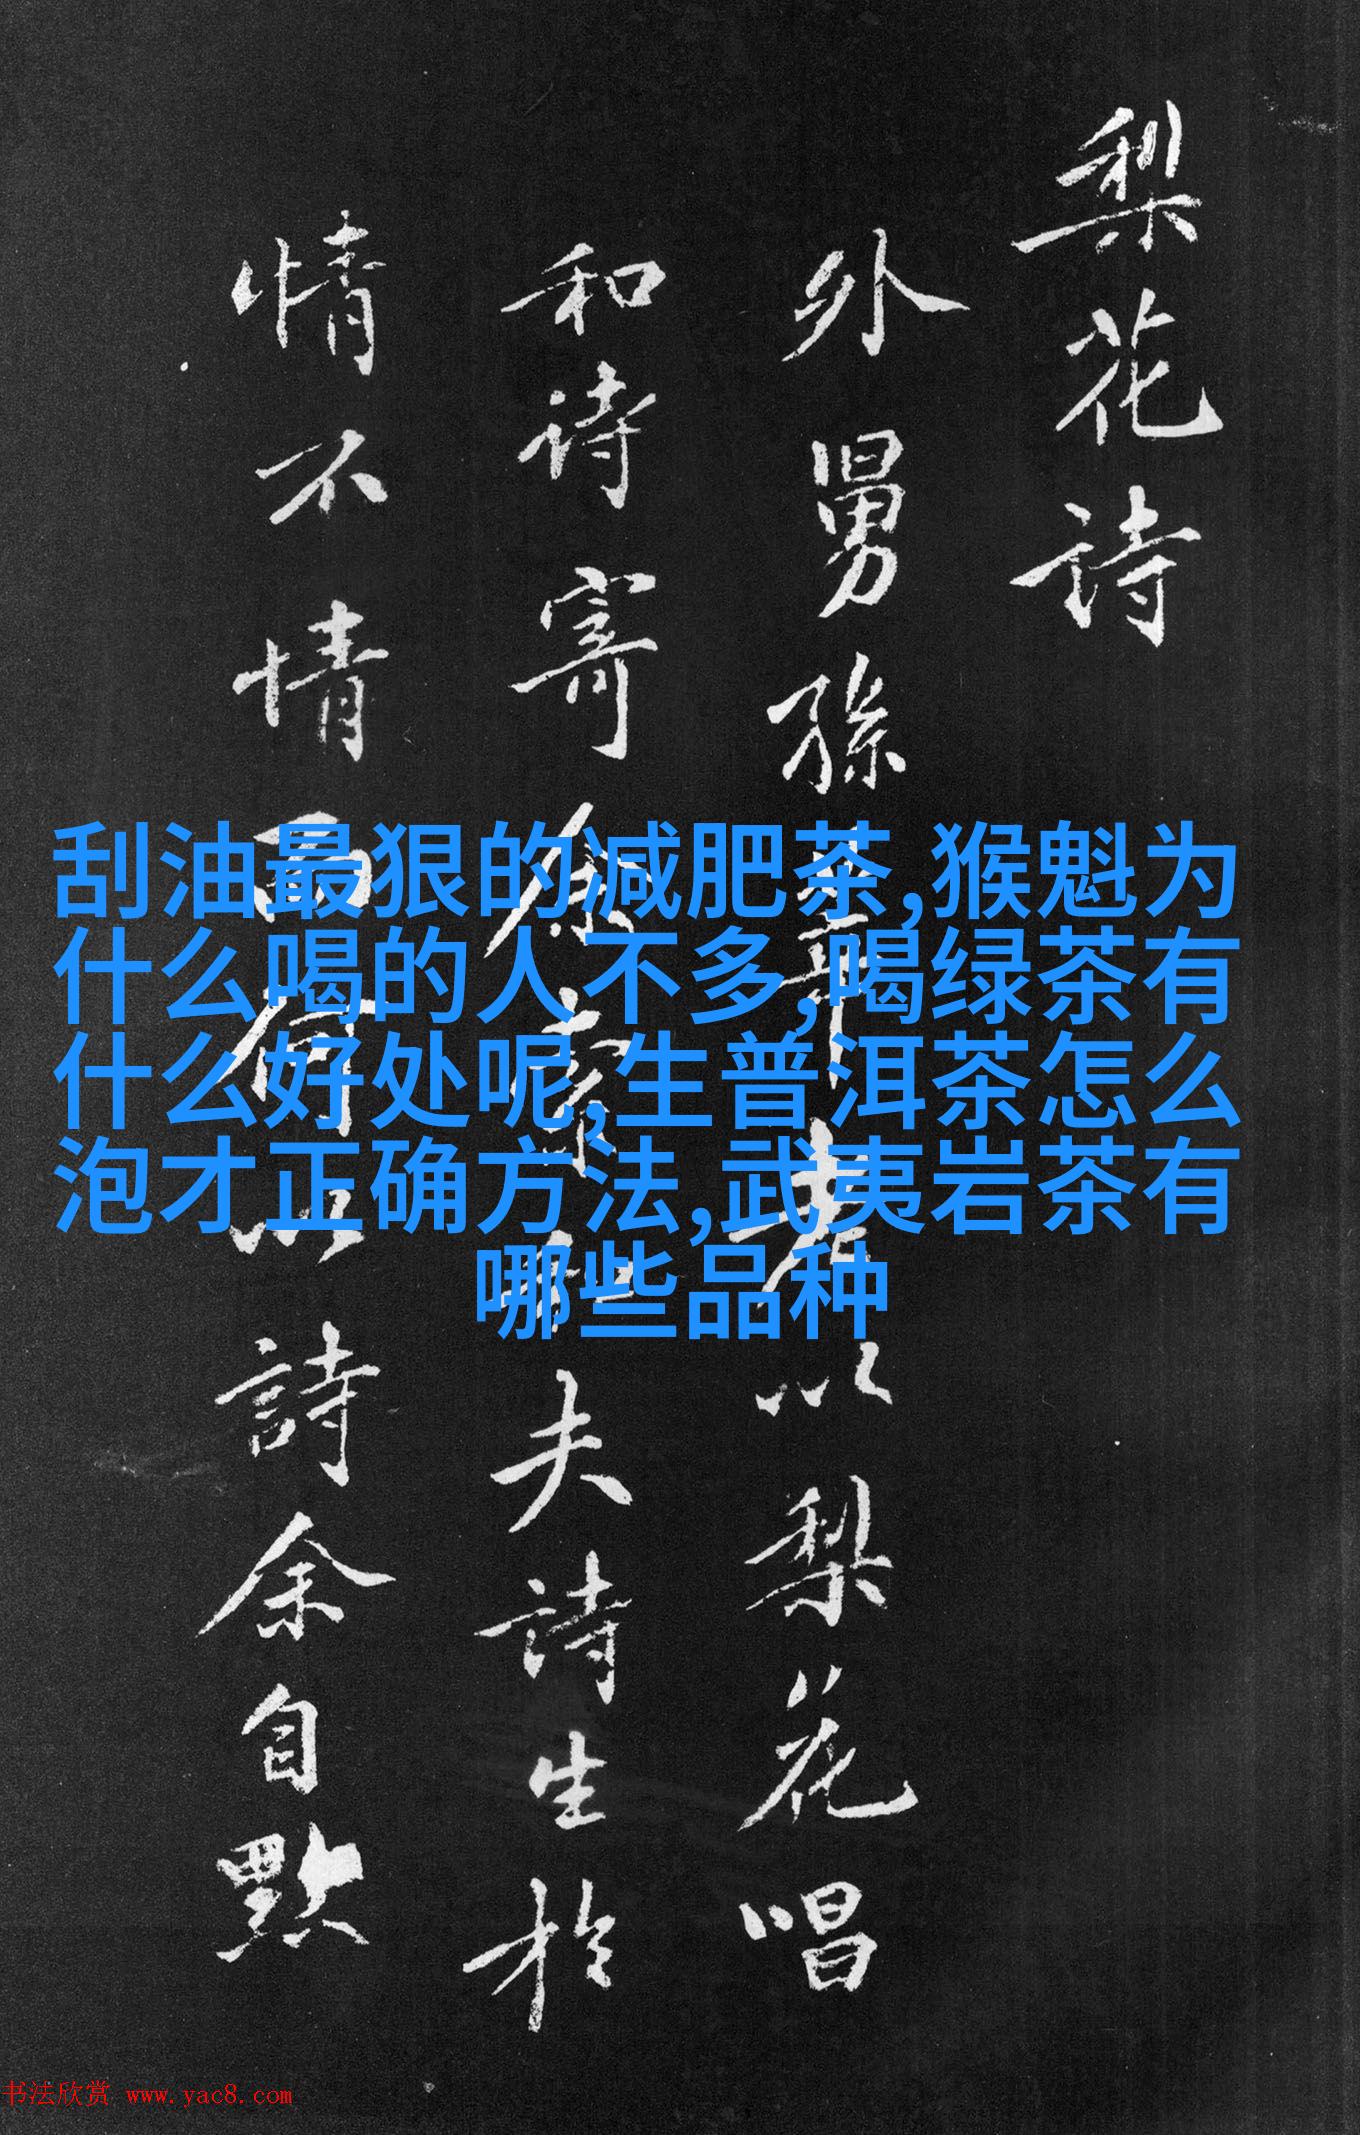 梨花诗
外舅孙
以梨花唱
和诗寄余
夫詩生於
情不情
詩余自黙
刮油最狠的减肥茶,猴魁为
什么喝的人不多,喝绿茶有
什么好处呢,生普洱茶怎么
泡才正确方法,武夷岩茶有
哪些品种
书法欣赏 www.yac8.com